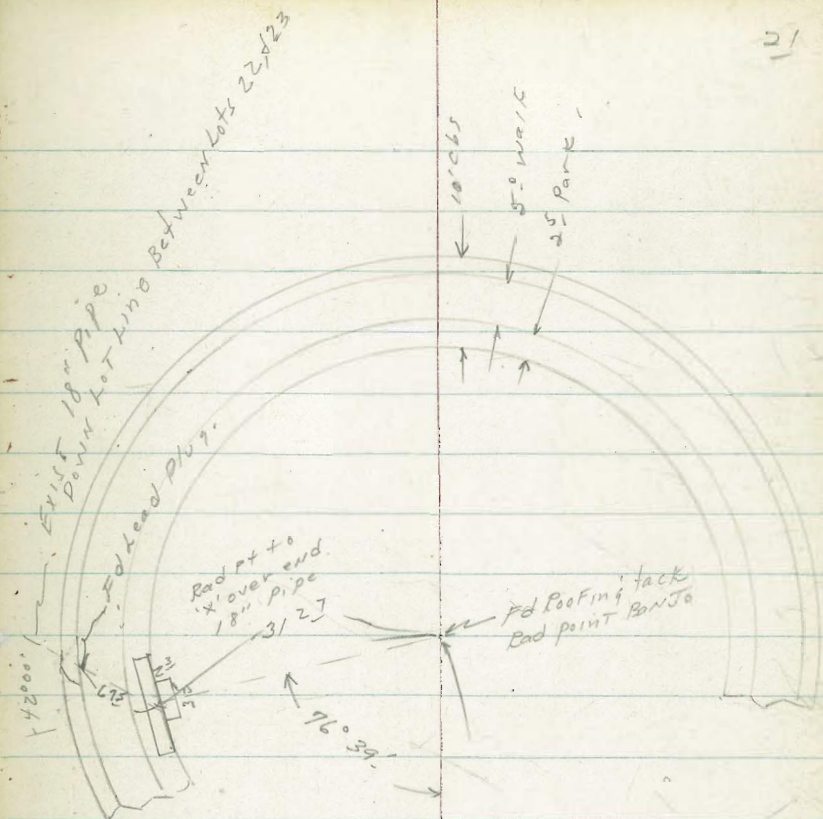 21
Exist 18" Pipe
Down Lot Line Between Lots 22,&23
5° Walk
2⁵ Park
Fd Lead Plug.
Rad pt to
'x' over end
18" pipe
31 27
Fd Roofing tack
Rad point BanJo
675
76° 39'